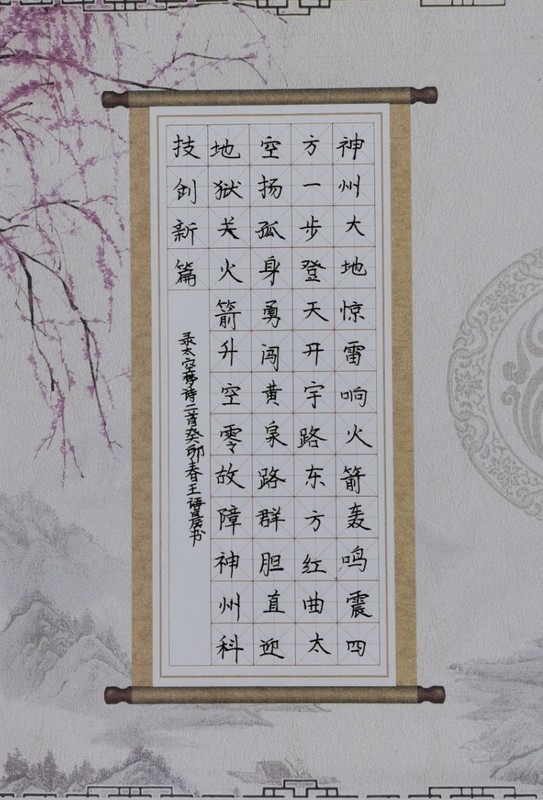 神州大地惊雷响火箭轰鸣震四
方一步登天开宇路东方红曲太
空扬孤身勇闯黄泉路群胆直迎
地狱关火箭升空零故障神州科
技创新篇
录太空梦诗二首癸卯春王语晨书